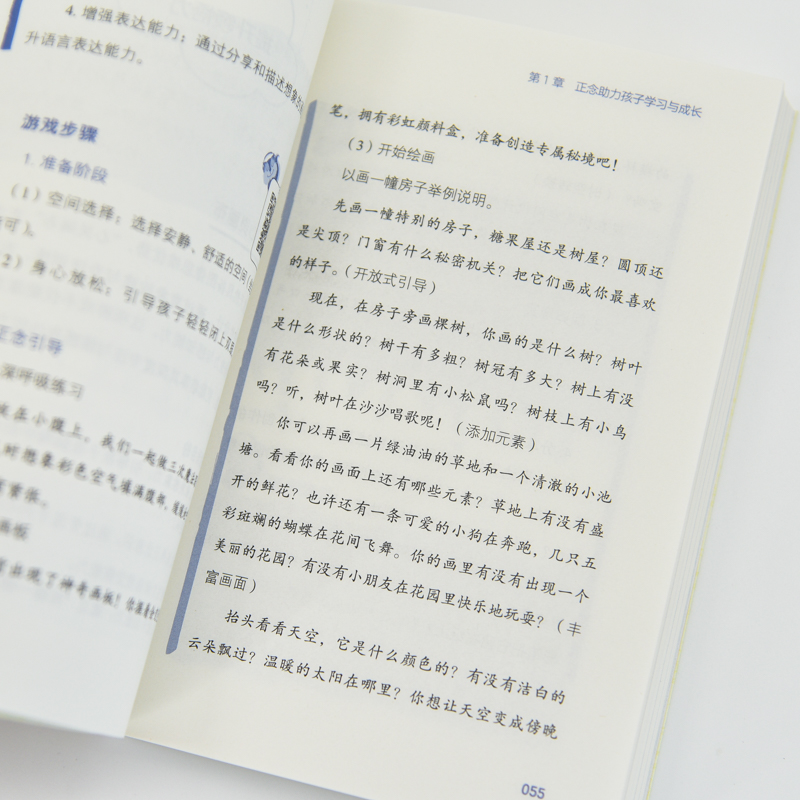 4. 增强表达能力：通过分享和描述想象
升语言表达能力。
游戏步骤
1. 准备阶段
（1）空间选择：选择安静、舒适的空间
可）。
2）身心放松：引导孩子轻轻闭上双
正念引导
深呼吸练习
放在小腹上。我们一起做三次
时想象彩色空气填满腹部，
画板
出现了神奇画板！你
第1章 正念助力孩子学习与成长
笔，拥有彩虹颜料盒，准备创造专属秘境吧！
（3）开始绘画
以画一幢房子举例说明。
先画一幢特别的房子，糖果屋还是树屋？圆顶还
是尖顶？门窗有什么秘密机关？把它们画成你最喜欢
的样子。（开放式引导）
现在，在房子旁画棵树，你画的是什么树？树叶
是什么形状的？树干有多粗？树冠有多大？树上有没
有花朵或果实？树洞里有小松鼠吗？树枝上有小鸟
吗？听，树叶在沙沙唱歌呢！（添加元素）
你可以再画一片绿油油的草地和一个清澈的小池
塘。看看你的画面上还有哪些元素？草地上有没有盛
开的鲜花？也许还有一条可爱的小狗在奔跑，几只五
彩斑斓的蝴蝶在花间飞舞。你的画里有没有出现一个
美丽的花园？有没有小朋友在花园里快乐地玩耍？（丰
富画面）
抬头看看天空，它是什么颜色的？有没有洁白的
云朵飘过？温暖的太阳在哪里？你想让天空变成傍晚
055